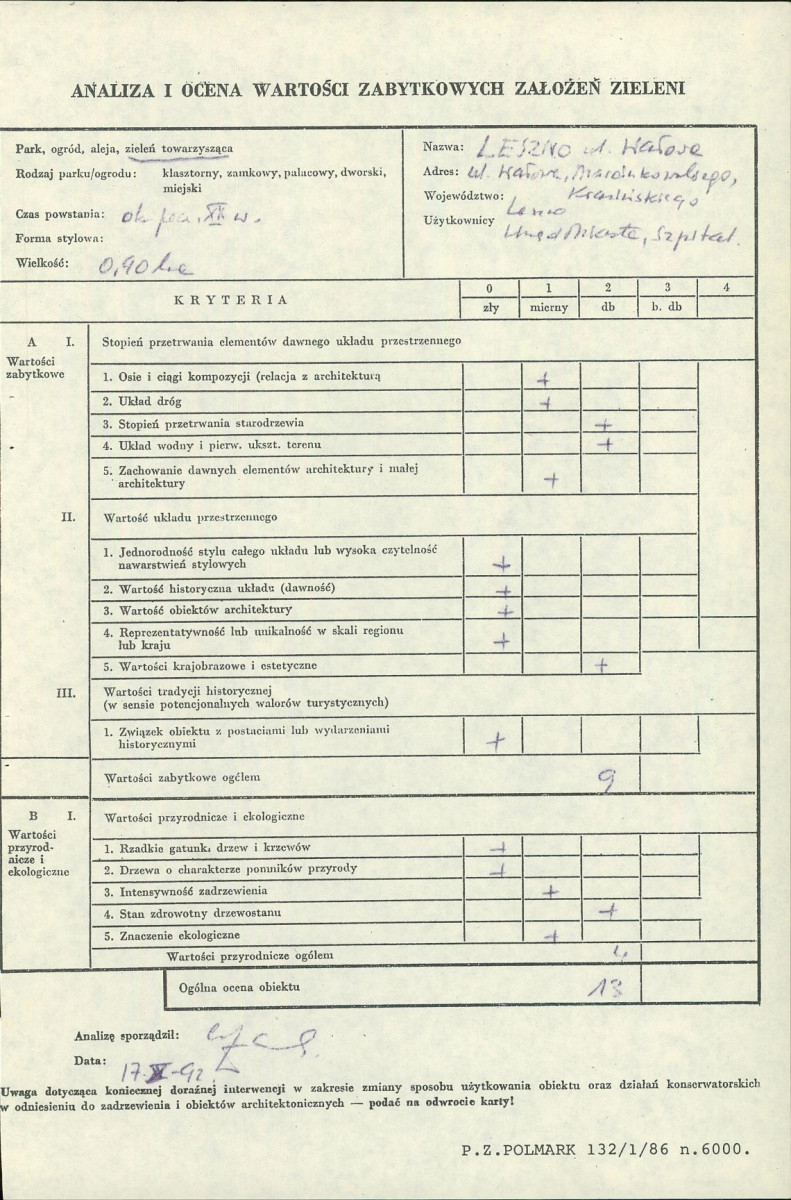 ANALIZA I OCENA WARTOŚCI ZABYTKOWYCH ZAŁOŻEŃ ZIELENI
Park, ogród, aleja, zieleń towarzysząca
Rodzaj parku/ogrodu: klasztorny, zamkowy, pałacowy, dworski,
miejski
Czas powstania: ok pocz. XX w.
Forma stylowa:
Wielkość: 0,90 ha
Nazwa: LESZNO ul. Wałowa
Adres: ul. Wałowa, Marcinkowskiego,
Krasińskiego
Województwo: Leszno
Użytkownicy Urząd Miasta, Szpital.
KRYTERIA
0 1 2 3 4
zły mierny db b. db
A I. Stopień przetrwania elementów dawnego układu przestrzennego
Wartości
zabytkowe
1. Osie i ciągi kompozycji (relacja z architekturą +
2. Układ dróg +
3. Stopień przetrwania starodrzewia +
4. Układ wodny i pierw. ukszt. terenu +
5. Zachowanie dawnych elementów architektury i małej
architektury +
II. Wartość układu przestrzennego
1. Jednorodność stylu całego układu lub wysoka czytelność
nawarstwień stylowych +
2. Wartość historyczna układu (dawność) +
3. Wartość obiektów architektury +
4. Reprezentatywność lub unikalność w skali regionu
lub kraju +
5. Wartości krajobrazowe i estetyczne +
III. Wartości tradycji historycznej
(w sensie potencjonalnych walorów turystycznych)
1. Związek obiektu z postaciami lub wydarzeniami
historycznymi +
Wartości zabytkowe ogólem 9
B I. Wartości przyrodnicze i ekologiczne
Wartości
przyrod-
nicze i
ekologiczne
1. Rzadkie gatunki drzew i krzewów +
2. Drzewa o charakterze pomników przyrody +
3. Intensywność zadrzewienia +
4. Stan zdrowotny drzewostanu +
5. Znaczenie ekologiczne +
Wartości przyrodnicze ogólem 4
Ogólna ocena obiektu 13
Analizę sporządził:
Data: 17.X-92
Uwaga dotycząca koniecznej doraźnej interwencji w zakresie zmiany sposobu użytkowania obiektu oraz działań konserwatorskich
w odniesieniu do zadrzewienia i obiektów architektonicznych — podać na odwrocie karty!
P.Z.POLMARK 132/1/86 n.6000.